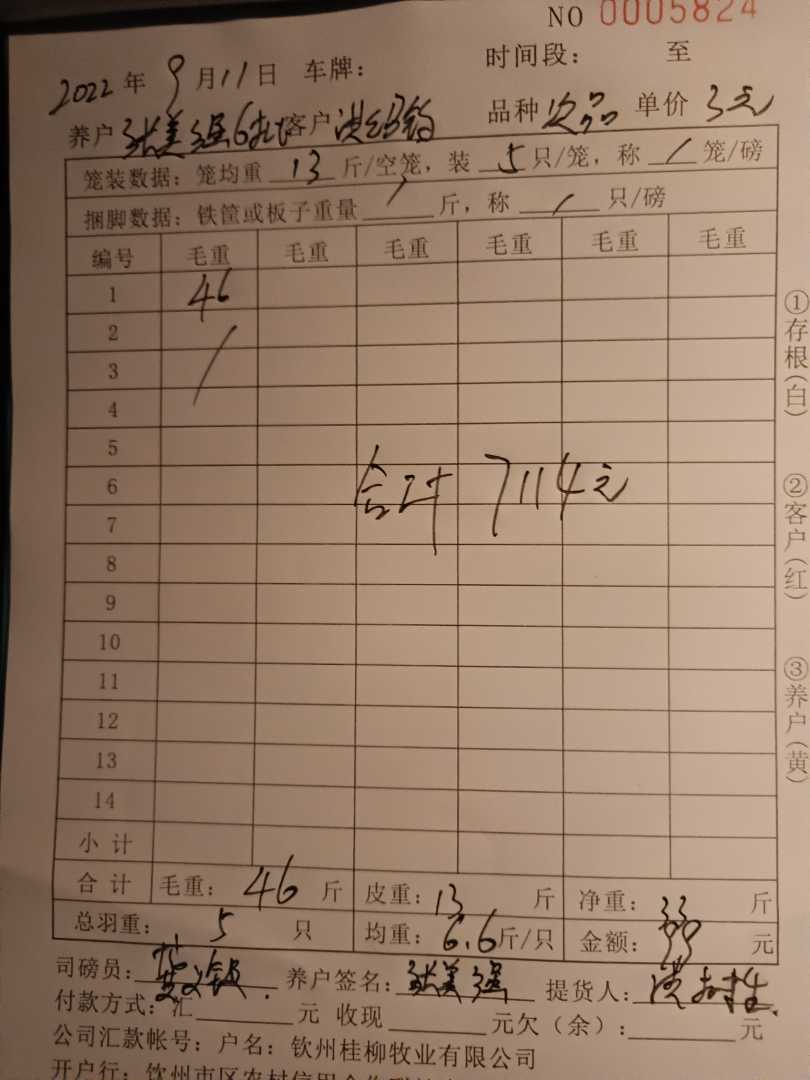 NO 0005824
2022年9月11日 车牌： 时间段： 至
养户 张美强6批 客户 洪 品种 次品 单价 3元
笼装数据：笼均重 13 斤/空笼，装 5 只/笼，称 / 笼/磅
捆脚数据：铁筐或板子重量 / 斤，称 / 只/磅
编号 毛重 毛重 毛重 毛重 毛重 毛重
1 46
2 /
3
4
5
6 合计 7114元
7
8
9
10
11
12
13
14
小计
合计 毛重：46 斤 皮重：13 斤 净重：33 斤
总羽重：5 只 均重：6.6斤/只 金额：99 元
司磅员： 养户签名：张美强 提货人：洪树生
付款方式：汇 元 收现 元欠（余）： 元
公司汇款帐号：户名：钦州桂柳牧业有限公司
开户行：钦州市区农村信用合作联
①存根(白)
②客户(红)
③养户(黄)